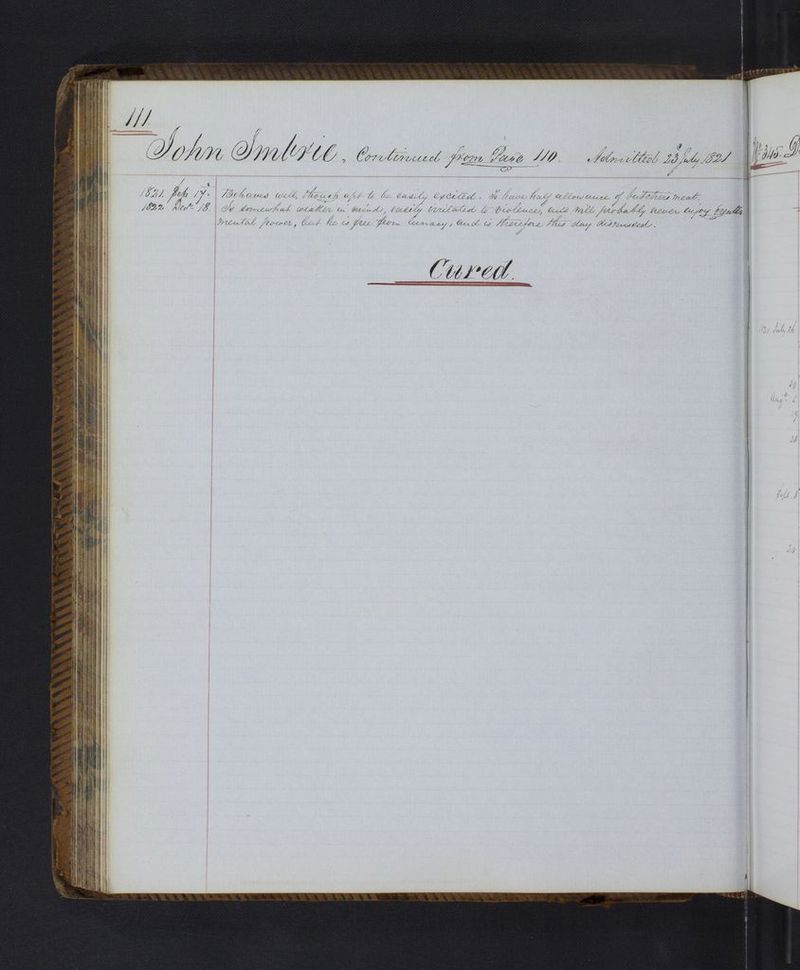 111
John Imbrie, Continued from Page 110. Admitted 23 July 1821
1821. Sep. 17. Behaves well, though apt to be easily excited. To have half allowance of butchers meat.
1822 Decr. 18. Is somewhat weaker in mind, easily irritated to violence, and will probably never enjoy greater
mental power, but he is free from lunacy, and is therefore this day dismissed.
Cured.
No. 345.
July 26
20
Augt. 5
28
Sept. 8
20